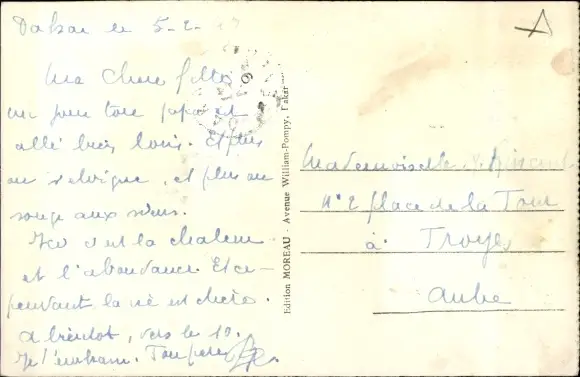 Dakar le 5-2-
Ma chère fille
un jour ton papa est
allé bien loin. Et plus
on s'eloigne, et plus on
songe aux siens.
Ici c'est la chaleur
et l'abondance. Et ce-
pendant la vie est chère.
A bientot, vers le 10.
Je t'embrasse. Ton père
Edition MOREAU - Avenue William-Ponpy, Dakar
Mademoiselle Y. Vincent
N° 2 place de la Tour
à Troyes
Aube